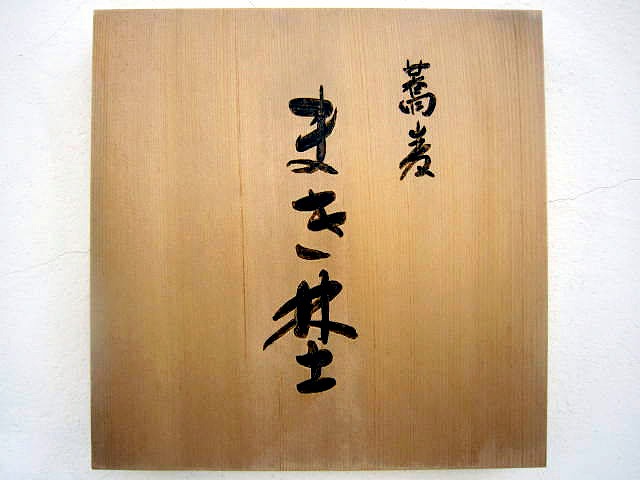 蕎麦
まき埜